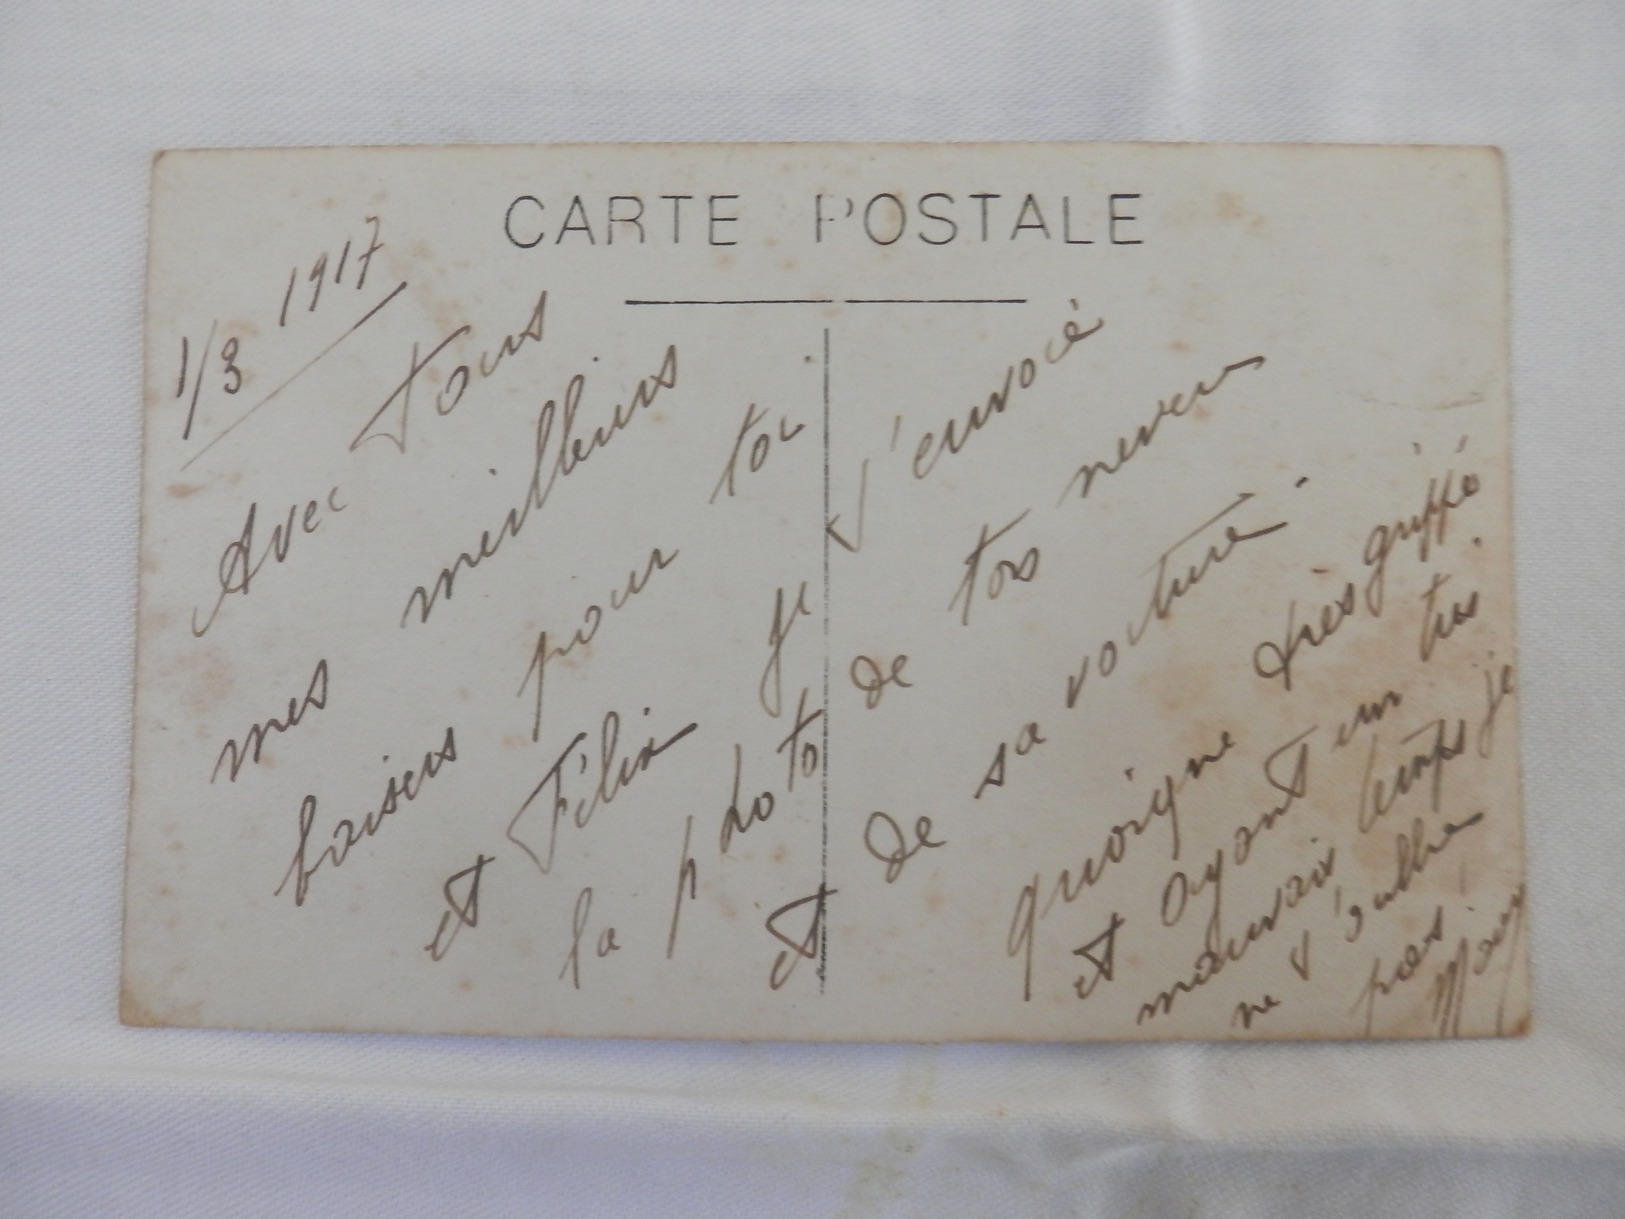 CARTE POSTALE
1/3 1917
Avec tous
mes meilleurs
baisers pour toi
et Félix je t'envoie
la photo de ton neveu
et de sa voiture.
quoique très grippé
et ayant un très
mauvais temps je
ne t'oublie
pas!